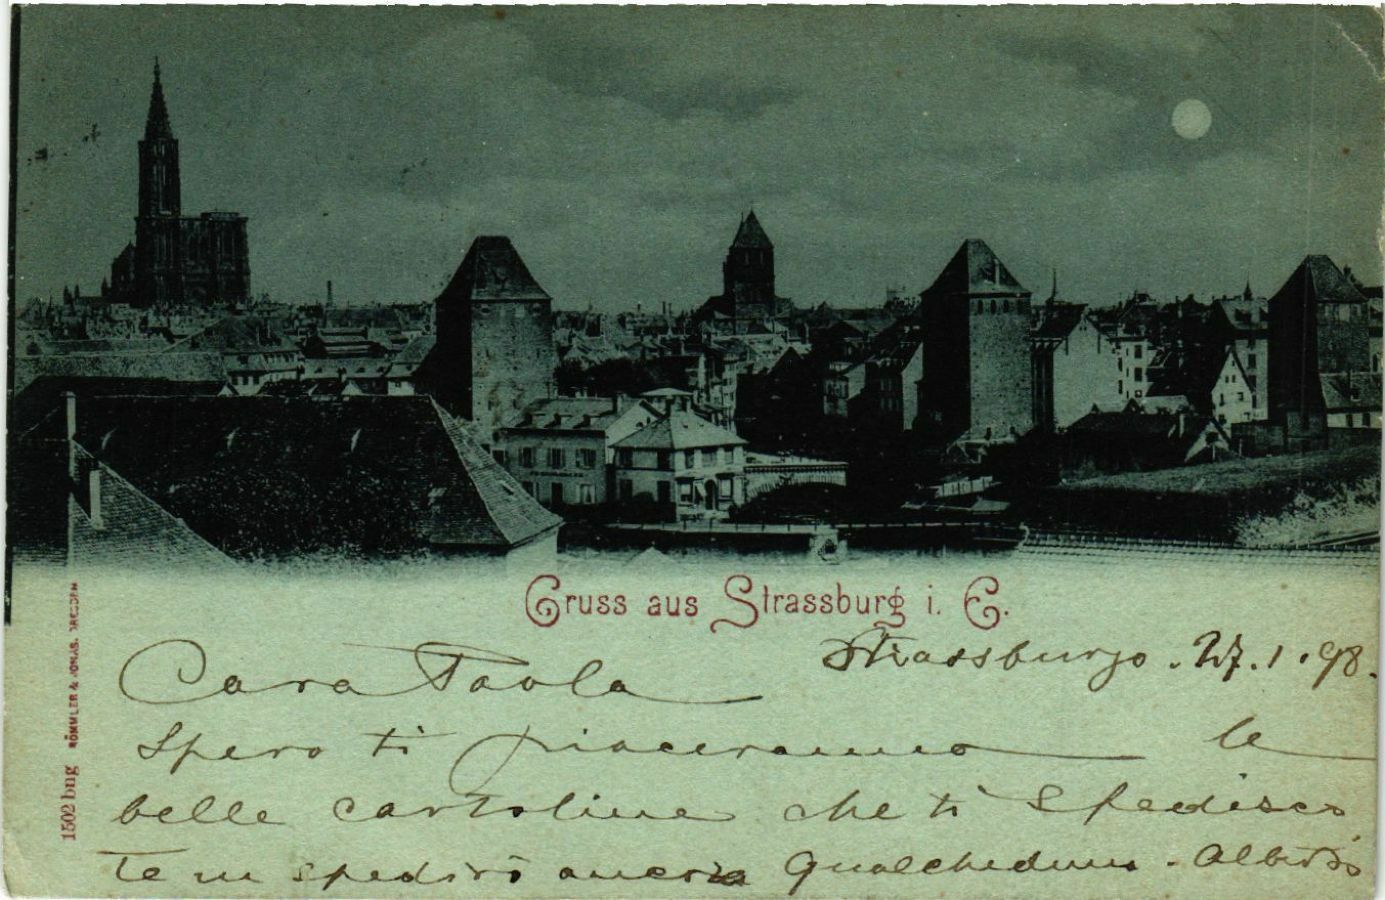 Gruss aus Strassburg i. E.
Strassburgo. 27.1.98.
Cara Paola
Spero ti piaceranno le
belle cartoline che ti spedisco
te ne spedirò ancora qualcheduna. Alberto
1502 bng RÖMMLER & JONAS, DRESDEN